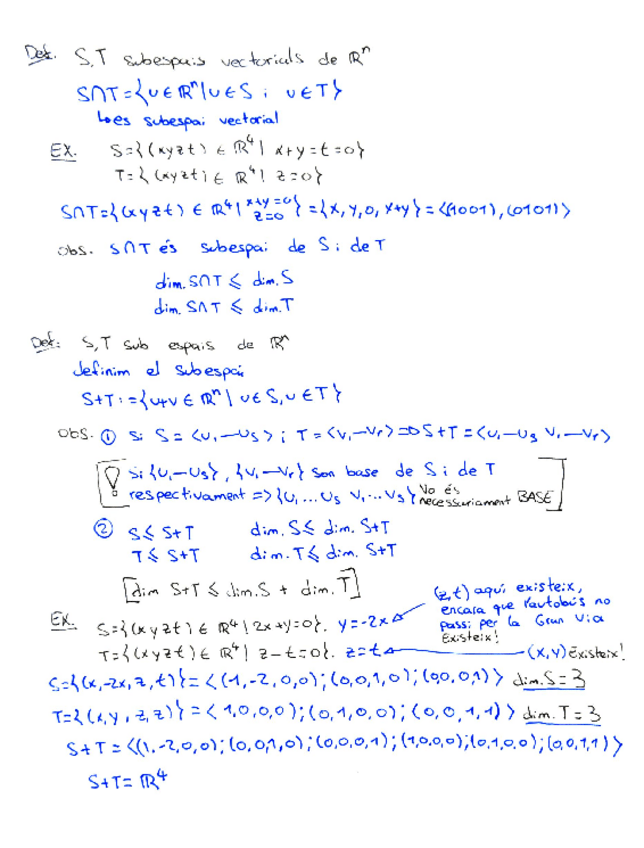 Def. S,T subespais vectorials de ℝⁿ
S∩T={u∈ℝⁿ|u∈S i u∈T}
↳es subespai vectorial
EX. S={(xyzt) ∈ ℝ⁴| x+y=t=0}
T={(xyzt) ∈ ℝ⁴| z=0}
S∩T={(xyzt) ∈ ℝ⁴| x+y=0 z=0} = {x,y,0,x+y} = <(1001),(0101)>
obs. S∩T és subespai de S i de T
dim. S∩T ⩽ dim. S
dim. S∩T ⩽ dim. T
Def: S,T sub espais de ℝⁿ
definim el subespai
S+T:={u+v ∈ ℝⁿ| u∈S, u∈T}
obs. ① Si S = <u₁–us> i T = <v₁–vr> => S+T = <u₁–us v₁–vr>
! Si {u₁–us}, {v₁–vr} son base de S i de T
respectivament => {u₁...us v₁...vs} No és necessariament BASE
② S ⩽ S+T dim. S ⩽ dim. S+T
T ⩽ S+T dim. T ⩽ dim. S+T
[dim S+T ⩽ dim. S + dim. T]
EX. S={(xyzt) ∈ ℝ⁴| 2x+y=0}. y=-2x
(z,t) aquí existeix,
encara que l'autobús no
passi per la Gran Via
Existeix!
T={(xyzt) ∈ ℝ⁴| z-t=0}. z=t (x,y) Existeix!
S={(x,-2x,z,t)} = <(1,-2,0,0);(0,0,1,0);(0,0,0,1)> dim. S=3
T={(x,y,z,z)} = <1,0,0,0);(0,1,0,0);(0,0,1,1)> dim. T=3
S+T = <(1,-2,0,0);(0,0,1,0);(0,0,0,1);(1,0,0,0);(0,1,0,0);(0,0,1,1)>
S+T= ℝ⁴